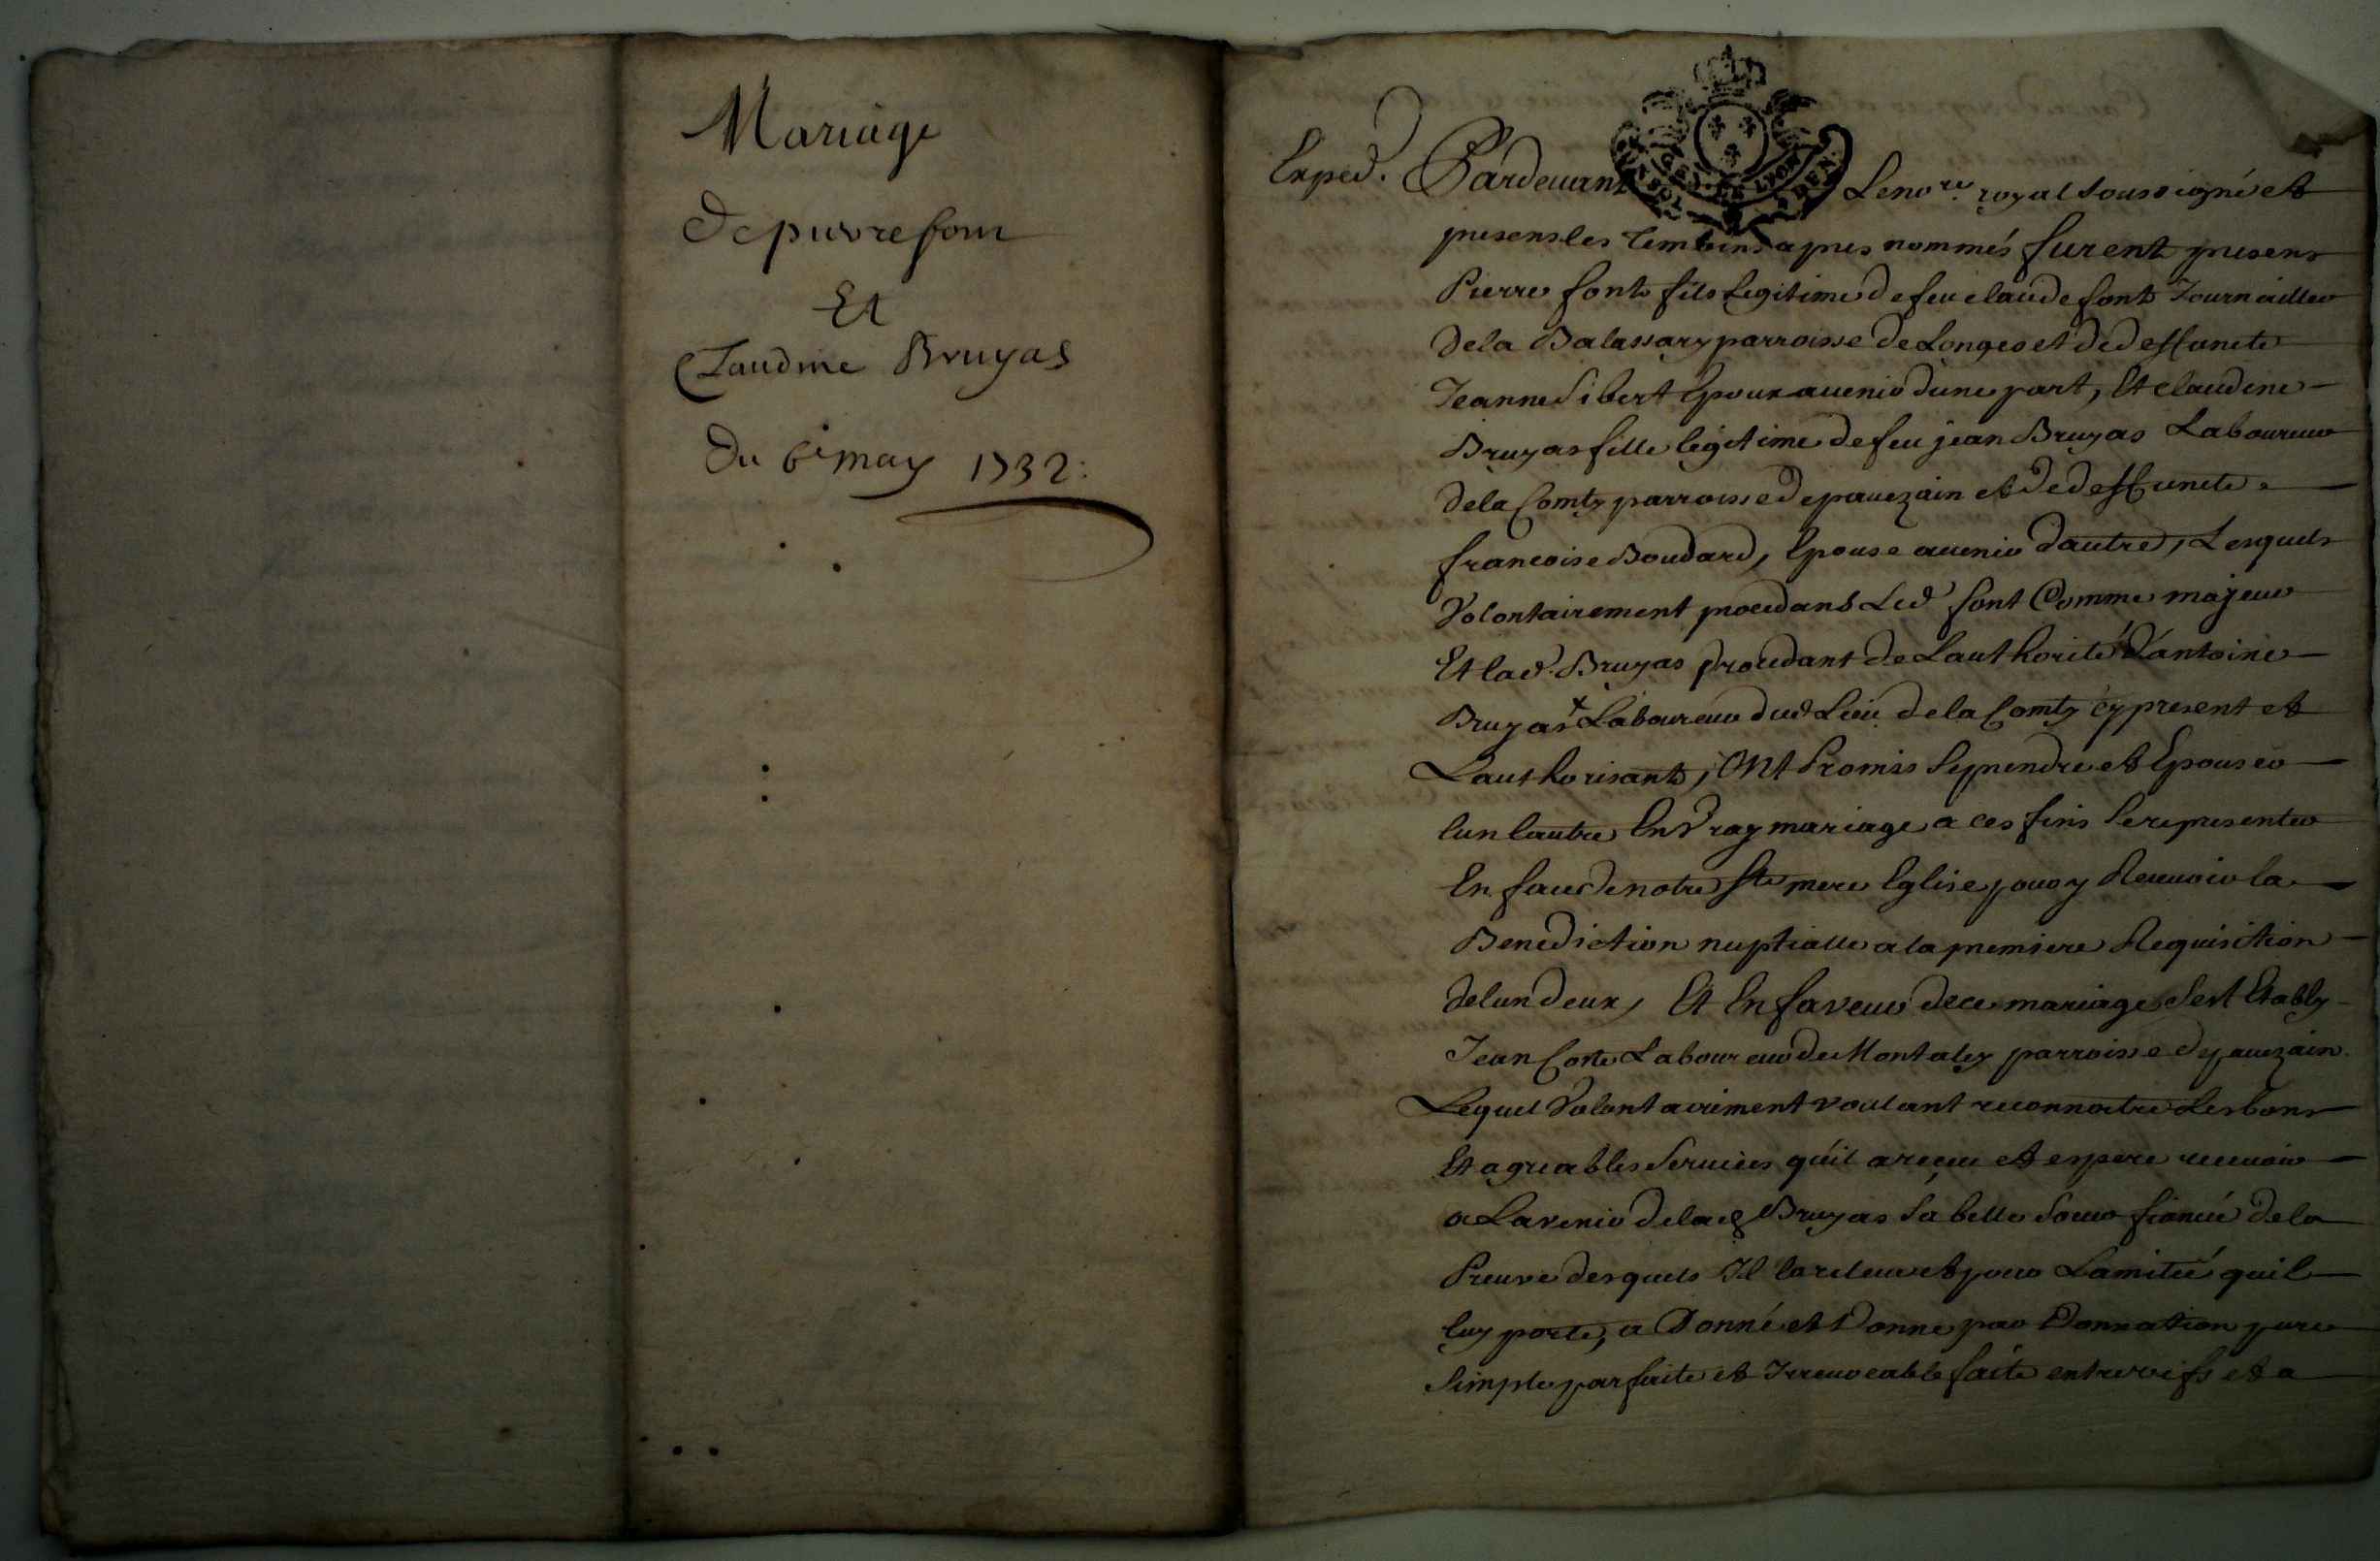 Mariage
De pierre font
Et
Claudine Bruyas
Du 6e may 1732:
Exped.
Pardeuant Le nore. royal soussigné et
presens les temoins apres nommés furent presens
Pierre font fils legitime de feu claude font Journallier
de la Balassary parroisse de Longes et de deffuncte
Jeanne Sibert Epoux auenir dune part, Et claudine
Bruyas fille legitime de feu jean Bruyas Laboureur
de la Comty parroisse de pauezain et de deffuncte
francoise Boudard, Epouse auenir dautre, Lesquels
Volontairement procedans Led font Comme majeur
Et lad. Bruyas procedant de Lauthorité d'antoine
Bruyas Laboureur dud Lieu de la Comty cy present et
Lauthorisant, ONt Promis se prendre et Epouser
lun lautre En Vray mariage a ces fins se representer
En face de notre Ste mere Eglise pour y Receuoir la
Benediction nuptialle a la premiere Requisition
de lun deux, Et En faveur de ce mariage sest Etably
Jean Corte Laboureur de Montaley parroisse de pauezain
Lequel Volontairement voulant reconnoitre Les bons
Et agreables seruices qu'il a reçeu et espere receuoir
a Lavenir de lad Bruyas sa belle soeur fiancée de la
Preuve desquels Il la releue et pour Lamitié quil
luy porte, a Donné et Donne par Donnation pure
simple parfaite et Irreuocable faite entre vifs et a